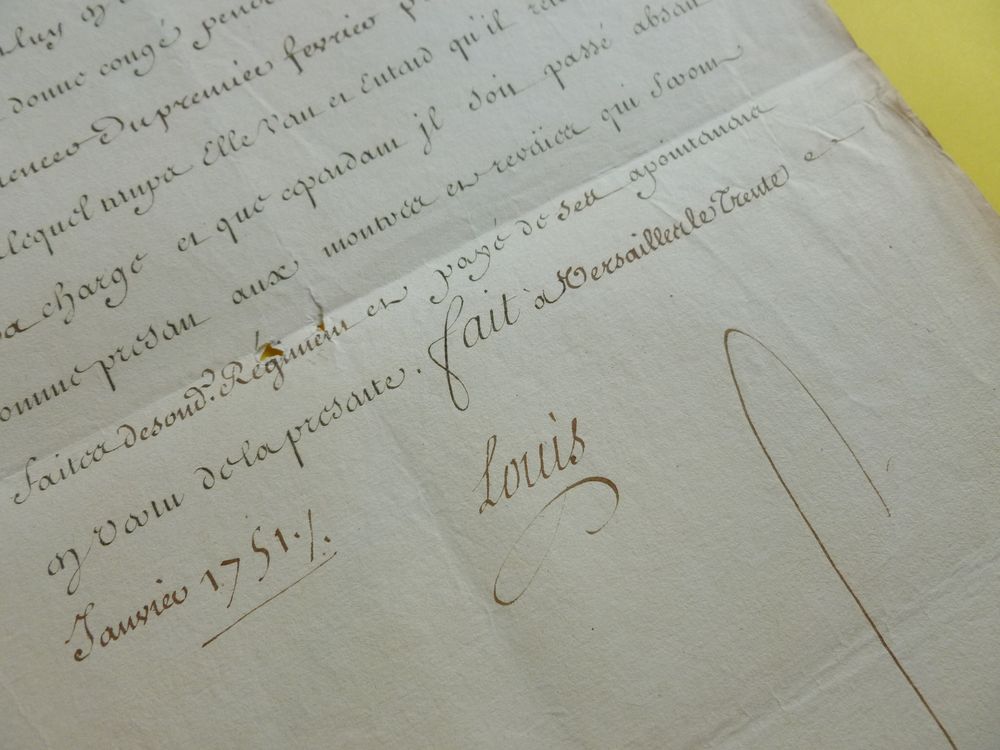 donne congé
Du premier fevrier
lequel temps Elle Veut et Entend qu'il
charge et que cependant jl soit passé absent
comme present aux montres et reveües qui Seront
faites desond.t Régiment et payé de ses apointemens
en vertu de la presente. fait à Versailles le Trente et
Janvier 1751./.
Louis